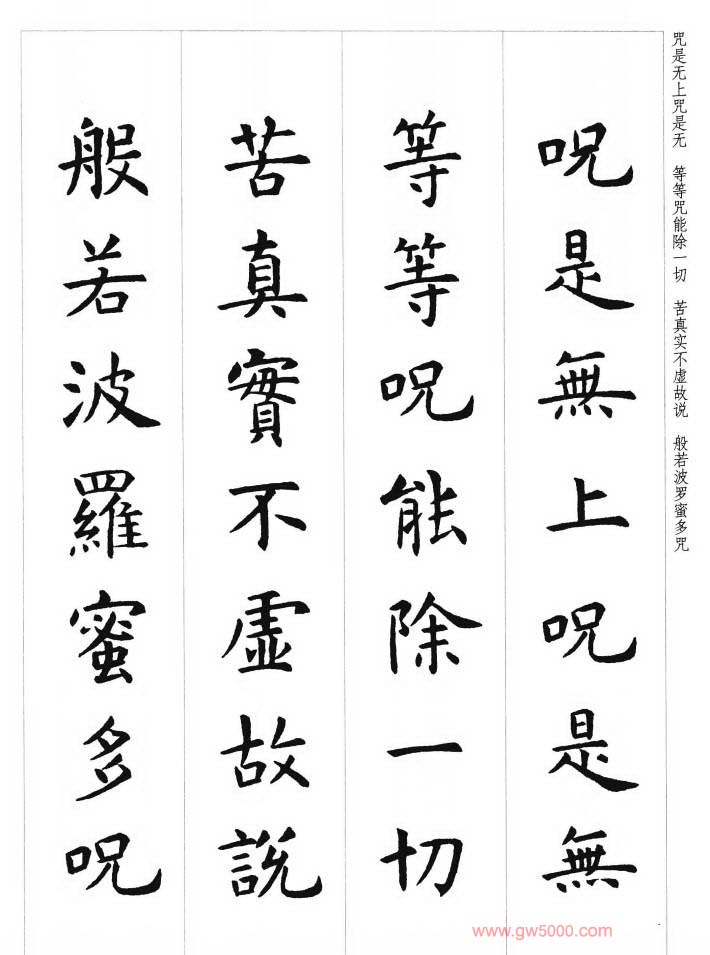 咒是无上咒是无 等等咒能除一切 苦真实不虚故说 般若波罗蜜多咒
呪是無上呪是無
等等呪能除一切
苦真實不虛故說
般若波羅蜜多呪
www.gw5000.com